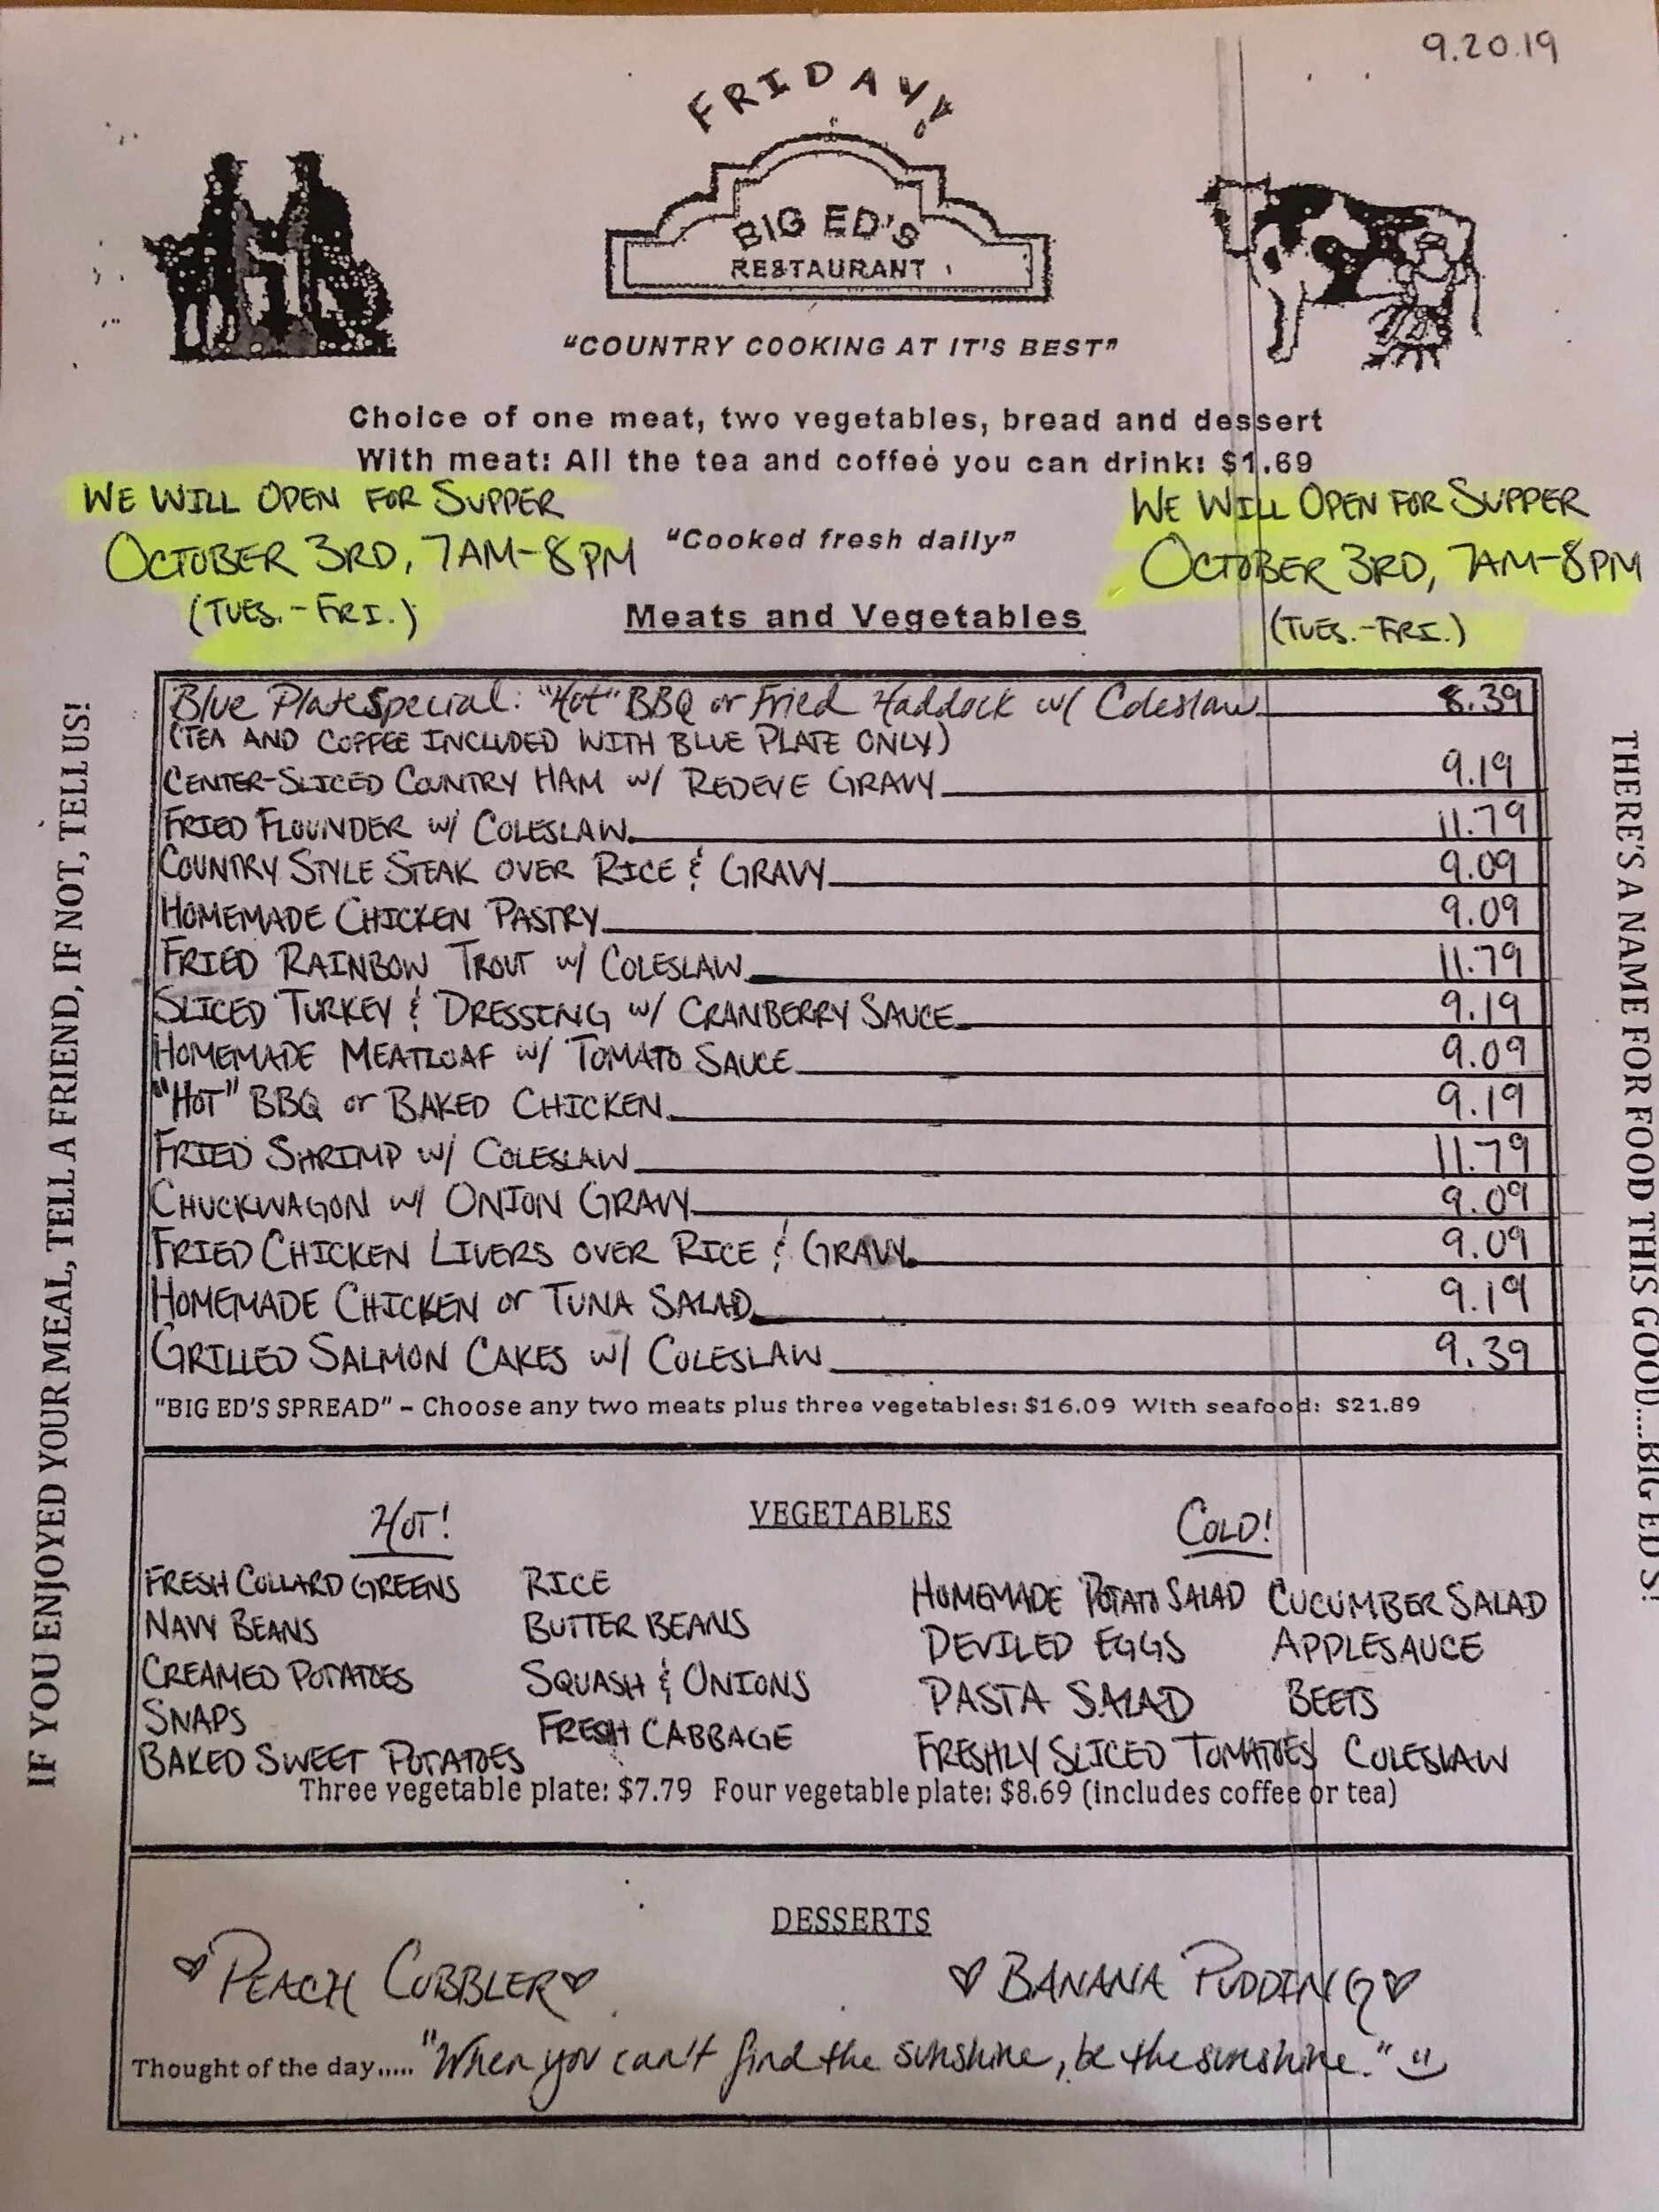 9.20.19
FRIDAY!
BIG ED'S
RESTAURANT
"COUNTRY COOKING AT IT'S BEST"
Choice of one meat, two vegetables, bread and dessert
With meat: All the tea and coffee you can drink: $1.69
WE WILL OPEN FOR SUPPER
OCTOBER 3RD, 7AM-8PM
(TUES.-FRI.)
"Cooked fresh daily"
WE WILL OPEN FOR SUPPER
OCTOBER 3RD, 7AM-8PM
(TUES.-FRI.)
Meats and Vegetables
Blue Plate Special: "Hot" BBQ or Fried Haddock w/ Coleslaw 8.39
(TEA AND COFFEE INCLUDED WITH BLUE PLATE ONLY)
CENTER-SLICED COUNTRY HAM w/ REDEYE GRAVY 9.19
FRIED FLOUNDER w/ COLESLAW 11.79
COUNTRY STYLE STEAK OVER RICE & GRAVY 9.09
HOMEMADE CHICKEN PASTRY 9.09
FRIED RAINBOW TROUT w/ COLESLAW 11.79
SLICED TURKEY & DRESSING w/ CRANBERRY SAUCE 9.19
HOMEMADE MEATLOAF w/ TOMATO SAUCE 9.09
"HOT" BBQ or BAKED CHICKEN 9.19
FRIED SHRIMP w/ COLESLAW 11.79
CHUCKWAGON w/ ONION GRAVY 9.09
FRIED CHICKEN LIVERS OVER RICE & GRAVY 9.09
HOMEMADE CHICKEN or TUNA SALAD 9.19
GRILLED SALMON CAKES w/ COLESLAW 9.39
"BIG ED'S SPREAD" – Choose any two meats plus three vegetables: $16.09 With seafood: $21.89
VEGETABLES
HOT!
FRESH COLLARD GREENS RICE
NAVY BEANS BUTTER BEANS
CREAMED POTATOES SQUASH & ONIONS
SNAPS FRESH CABBAGE
BAKED SWEET POTATOES
COLD!
HOMEMADE POTATO SALAD CUCUMBER SALAD
DEVILED EGGS APPLESAUCE
PASTA SALAD BEETS
FRESHLY SLICED TOMATOES COLESLAW
Three vegetable plate: $7.79 Four vegetable plate: $8.69 (includes coffee or tea)
DESSERTS
♡ PEACH COBBLER ♡ ♡ BANANA PUDDING ♡
Thought of the day..... "When you can't find the sunshine, be the sunshine."
IF YOU ENJOYED YOUR MEAL, TELL A FRIEND, IF NOT, TELL US!
THERE'S A NAME FOR FOOD THIS GOOD....BIG ED'S!